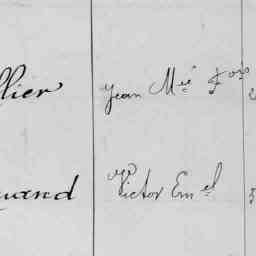 llier Jean Mie Fois
uand Victor Emel